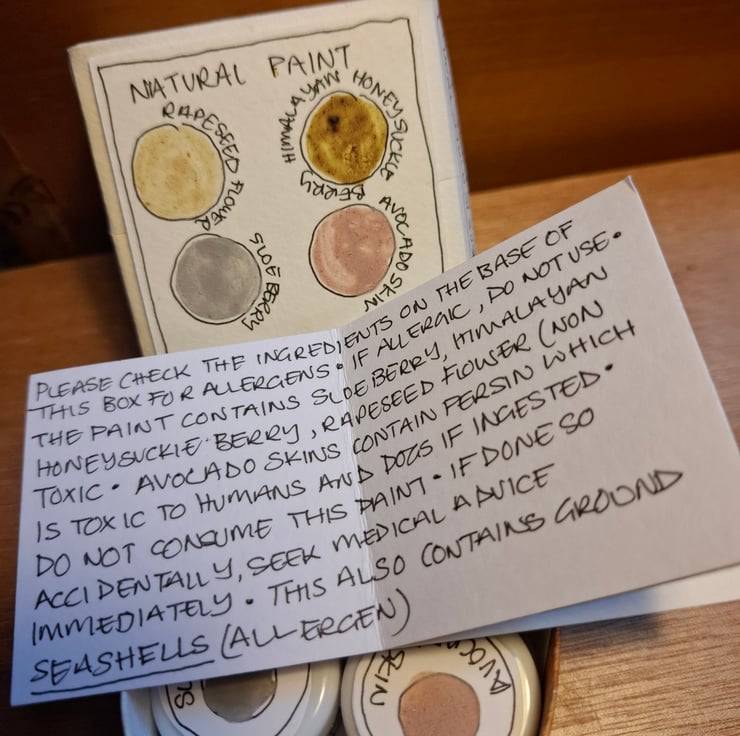 NATURAL PAINT
RAPESEED FLOWER
HIMALAYAN HONEYSUCKLE BERRY
SLOE BERRY
AVOCADO SKIN
PLEASE CHECK THE INGREDIENTS ON THE BASE OF
THIS BOX FOR ALLERGENS • IF ALLERGIC, DO NOT USE •
THE PAINT CONTAINS SLOE BERRY, HIMALAYAN
HONEYSUCKLE BERRY, RAPESEED FLOWER (NON
TOXIC • AVOCADO SKINS CONTAIN PERSIN WHICH
IS TOXIC TO HUMANS AND DOGS IF INGESTED •
DO NOT CONSUME THIS PAINT • IF DONE SO
ACCIDENTALLY, SEEK MEDICAL ADVICE
IMMEDIATELY • THIS ALSO CONTAINS GROUND
SEASHELLS (ALLERGEN)
SKIN